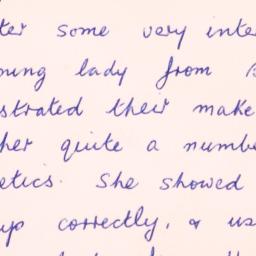 ter some very inter
oung lady from
strated their make
her quite a numbe
etics. She showed
up correctly, & us